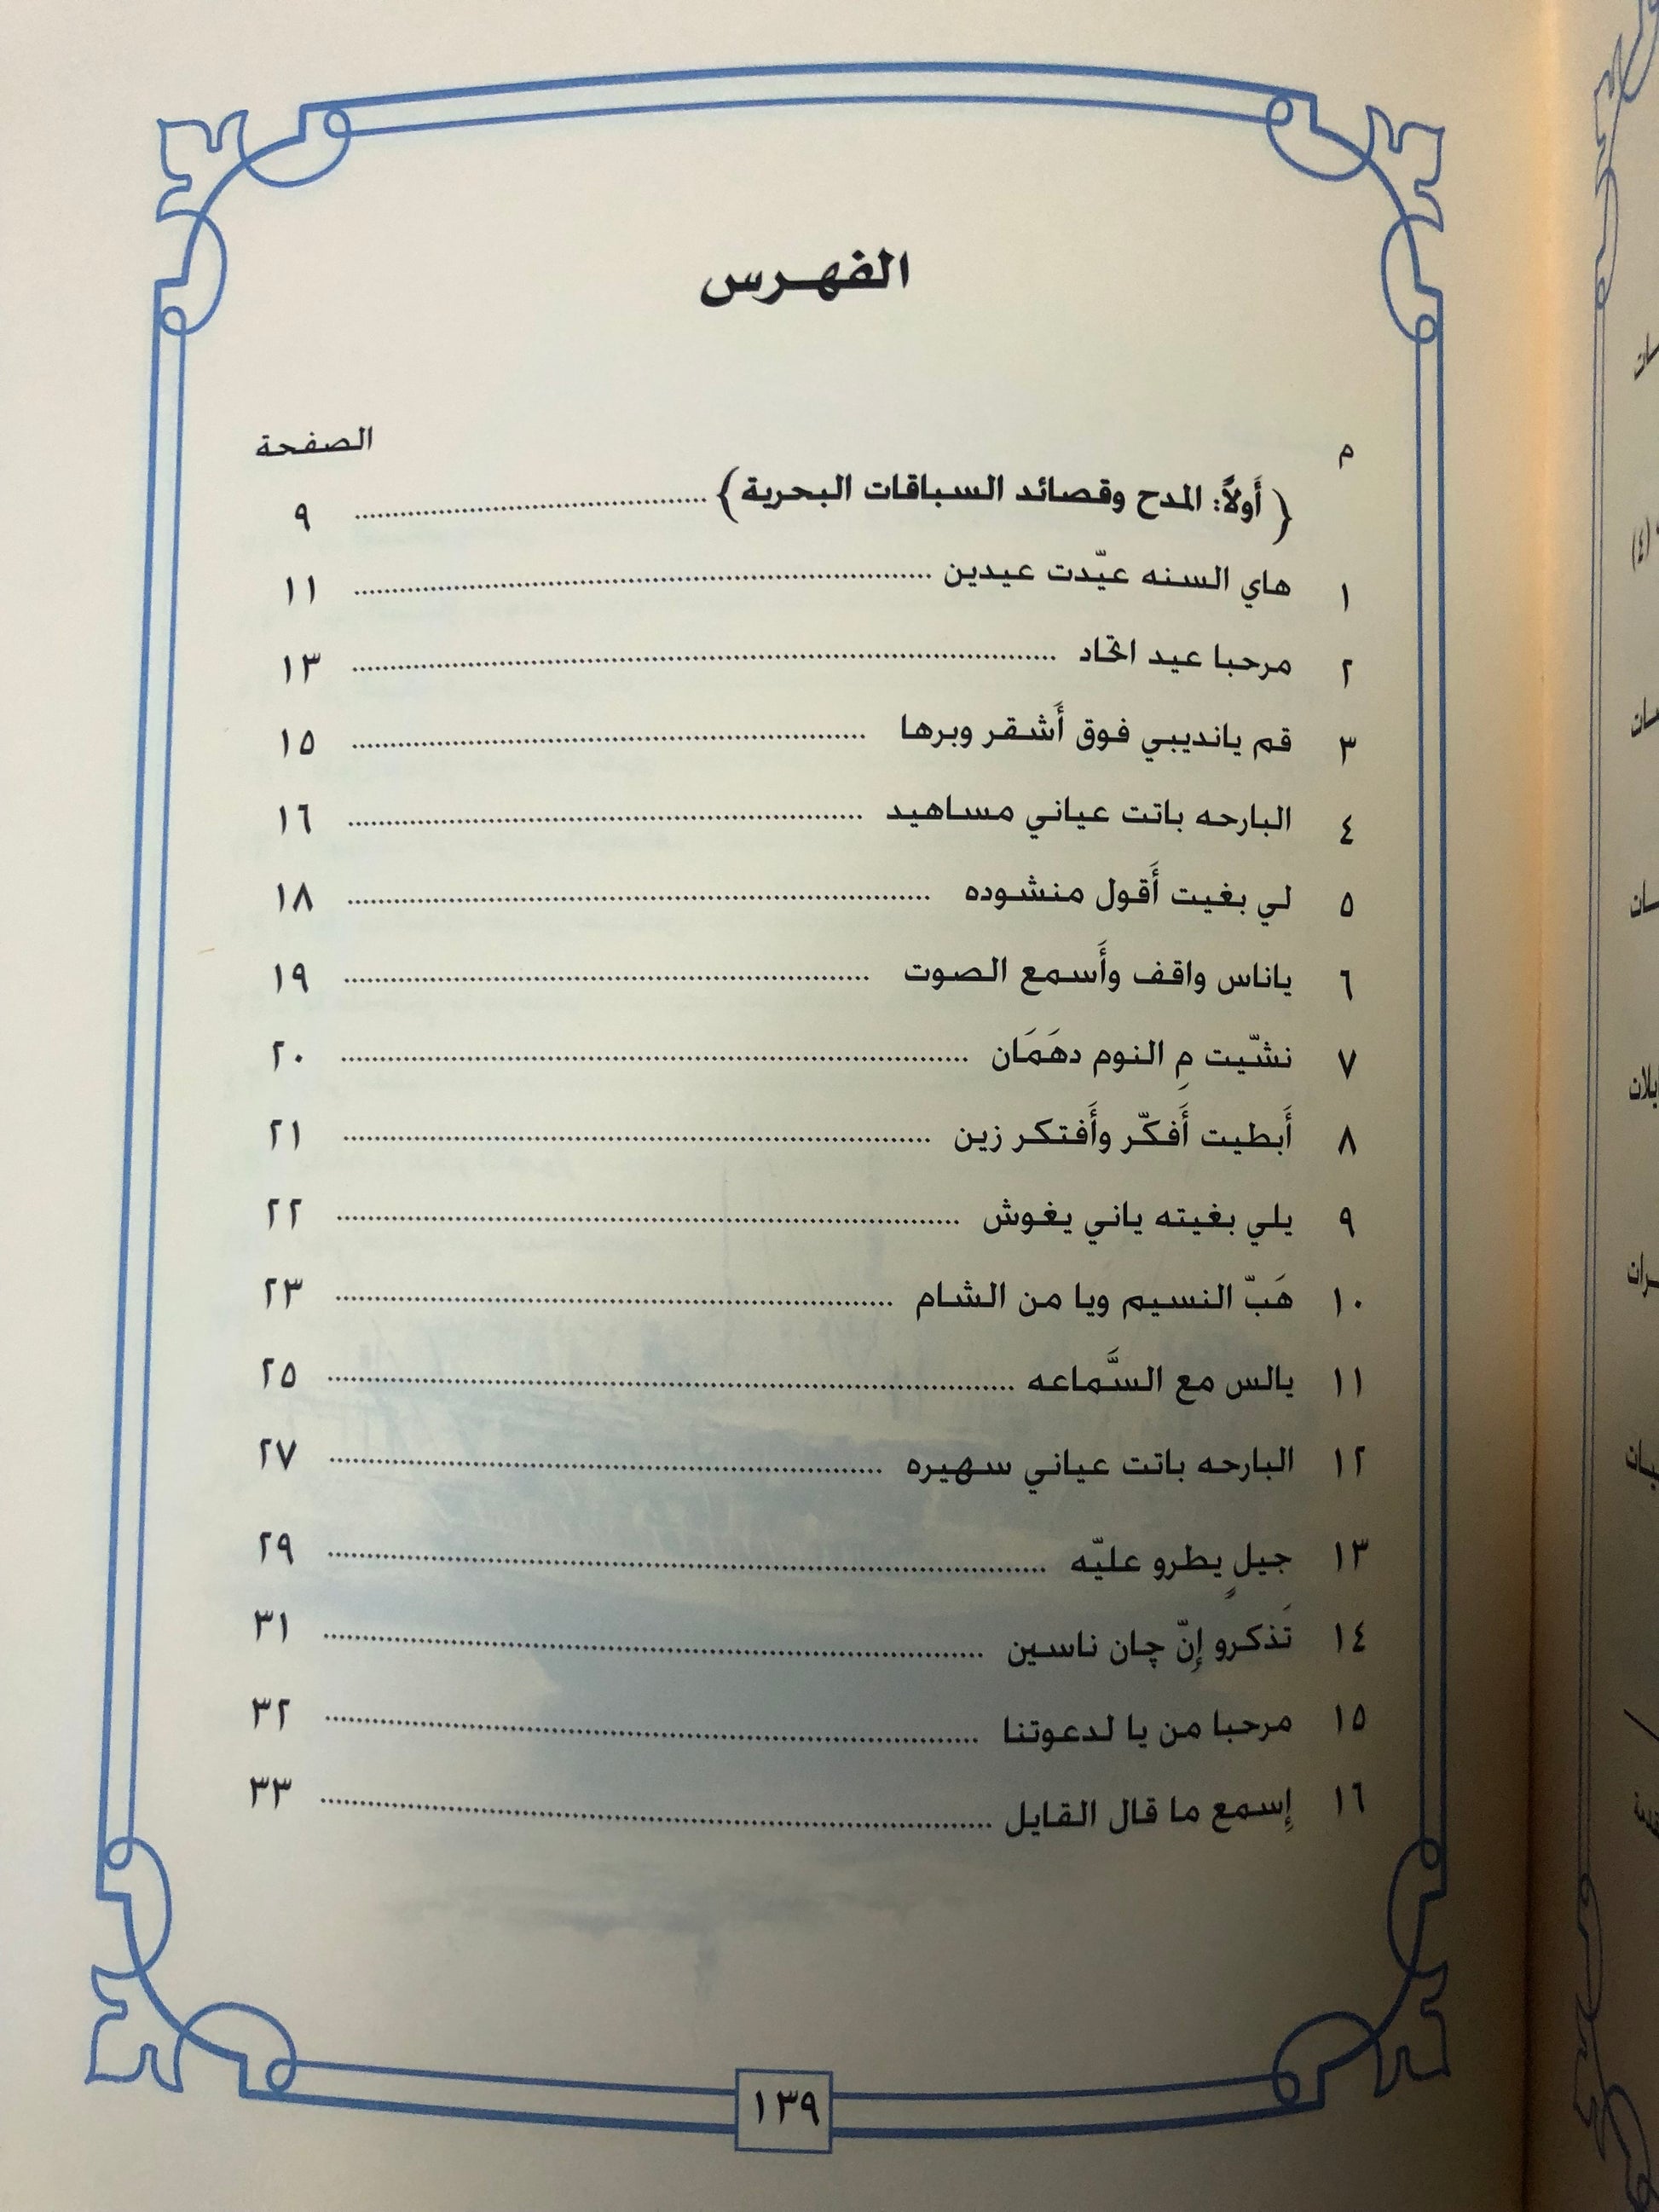 الفهرس
م الصفحة
﴿ أَولاً: المدح وقصائد السباقات البحرية ﴾ ........ ٩
١ هاي السنه عيّدت عيدين ........ ١١
٢ مرحبا عيد اتحاد ........ ١٣
٣ قم يانديبي فوق أَشقر وبرها ........ ١٥
٤ البارحه باتت عياني مساهيد ........ ١٦
٥ لي بغيت أَقول منشوده ........ ١٨
٦ ياناس واقف وأَسمع الصوت ........ ١٩
٧ نشّيت مِ النوم دهَمَان ........ ٢٠
٨ أَبطيت أَفكّر وأَفتكر زين ........ ٢١
٩ يلي بغيته ياني يغوش ........ ٢٢
١٠ هَبّ النسيم ويا من الشام ........ ٢٣
١١ يالس مع السَّماعه ........ ٢٥
١٢ البارحه باتت عياني سهيره ........ ٢٧
١٣ جيلٍ يطرو عليّه ........ ٢٩
١٤ تَذكرو إِنّ چان ناسين ........ ٣١
١٥ مرحبا من يا لدعوتنا ........ ٣٢
١٦ إِسمع ما قال القايل ........ ٣٣
١٣٩